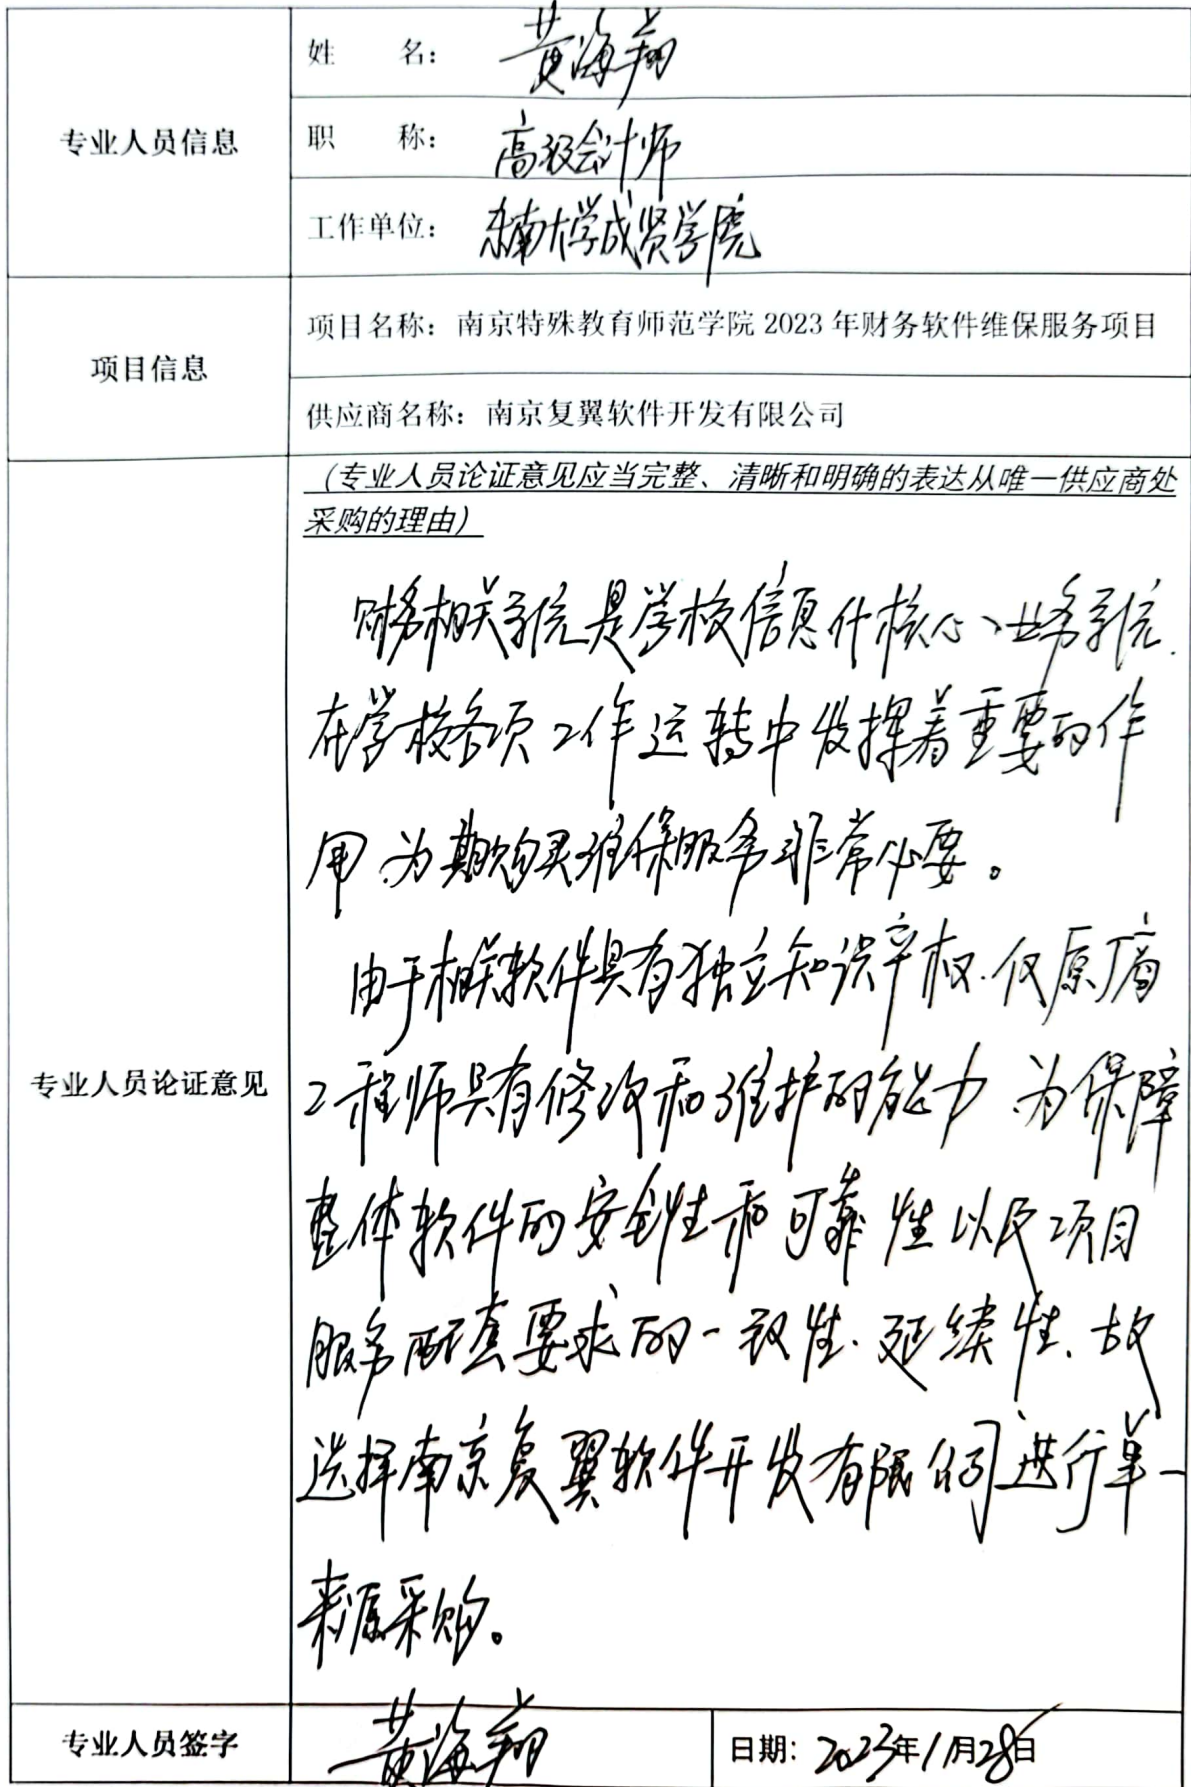 专业人员信息
姓 名： 黄海翔
职 称： 高级会计师
工作单位： 东南大学成贤学院
项目信息
项目名称：南京特殊教育师范学院 2023 年财务软件维保服务项目
供应商名称：南京复翼软件开发有限公司
专业人员论证意见
（专业人员论证意见应当完整、清晰和明确的表达从唯一供应商处
采购的理由）
财务相关系统是学校信息化核心业务系统，
在学校各项工作运转中发挥着重要的作
用，为期购买维保服务非常必要。
由于相关软件具有独立知识产权，仅原厂商
工程师具有修改和维护的能力，为保障
整体软件的安全性和可靠性以及项目
服务配套要求的一致性、延续性，故
选择南京复翼软件开发有限公司进行单一
来源采购。
专业人员签字
黄海翔
日期：2023年11月28日